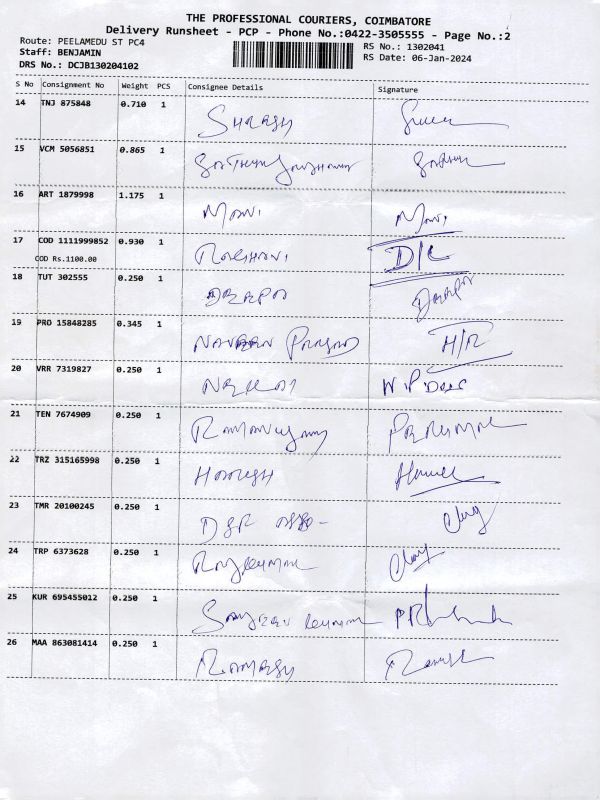 THE PROFESSIONAL COURIERS, COIMBATORE
Delivery Runsheet - PCP - Phone No.:0422-3505555 - Page No.:2
Route: PEELAMEDU ST PC4
RS No.: 1302041
Staff: BENJAMIN
RS Date: 06-Jan-2024
DRS No.: DCJB130204102
S No Consignment No Weight PCS Consignee Details Signature
14 TNJ 875848 0.710 1 Suresh
15 VCM 5056851 0.865 1
16 ART 1879998 1.175 1 Mani Mani
17 COD 1111999852 0.930 1 Roshani D/L
COD Rs.1100.00
18 TUT 302555 0.250 1
19 PRO 15848285 0.345 1 Naveen Prasad H/R
20 VRR 7319827 0.250 1
21 TEN 7674909 0.250 1 Perumal
22 TRZ 315165998 0.250 1 Harish
23 TMR 20100245 0.250 1
24 TRP 6373628 0.250 1 Rajkumar
25 KUR 695455012 0.250 1 Sanjeev Kumar
26 MAA 863081414 0.250 1 Ramesh Ramesh